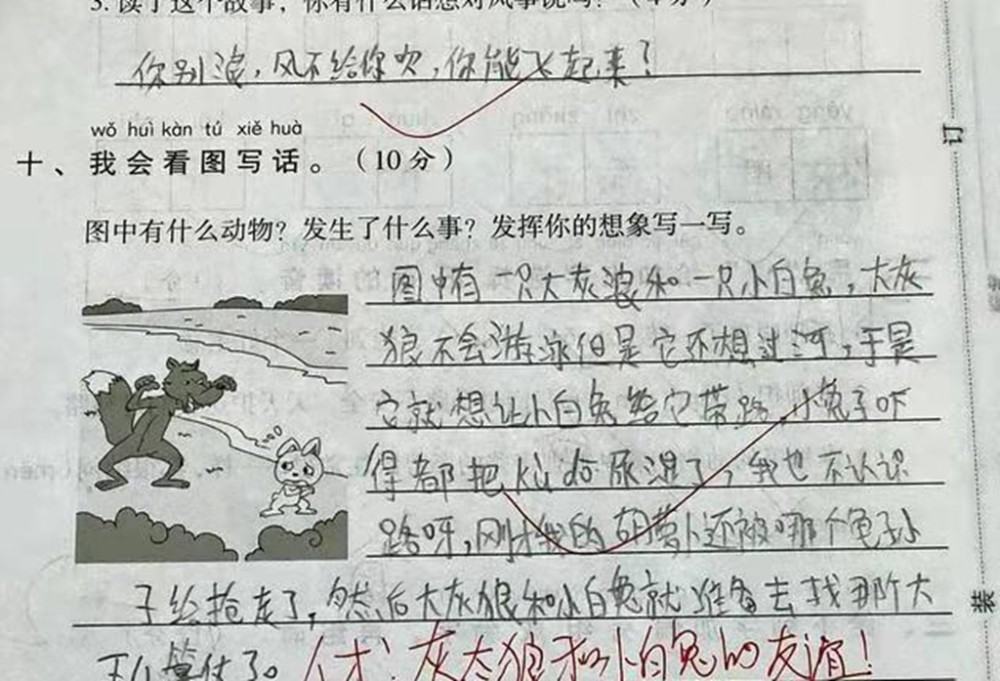 3. 读了这个故事，你有什么话想对风筝说吗？（4分）
你别浪，风不给你吹，你能飞起来？
wǒ huì kàn tú xiě huà
十、我会看图写话。（10分）
图中有什么动物？发生了什么事？发挥你的想象写一写。
图中有一只大灰浪和一只小白兔，大灰
狼不会游泳但是它还想过河，于是
它就想让小白兔给它带路，小兔子吓
得都把kù dō尿湿了，我也不认识
路呀，刚才我的胡萝卜还被哪个龟孙
子给抢走了，然后大灰狼和小白兔就准备去找那个大
算仗了。人才！灰太狼和小白兔的友谊！
订
装